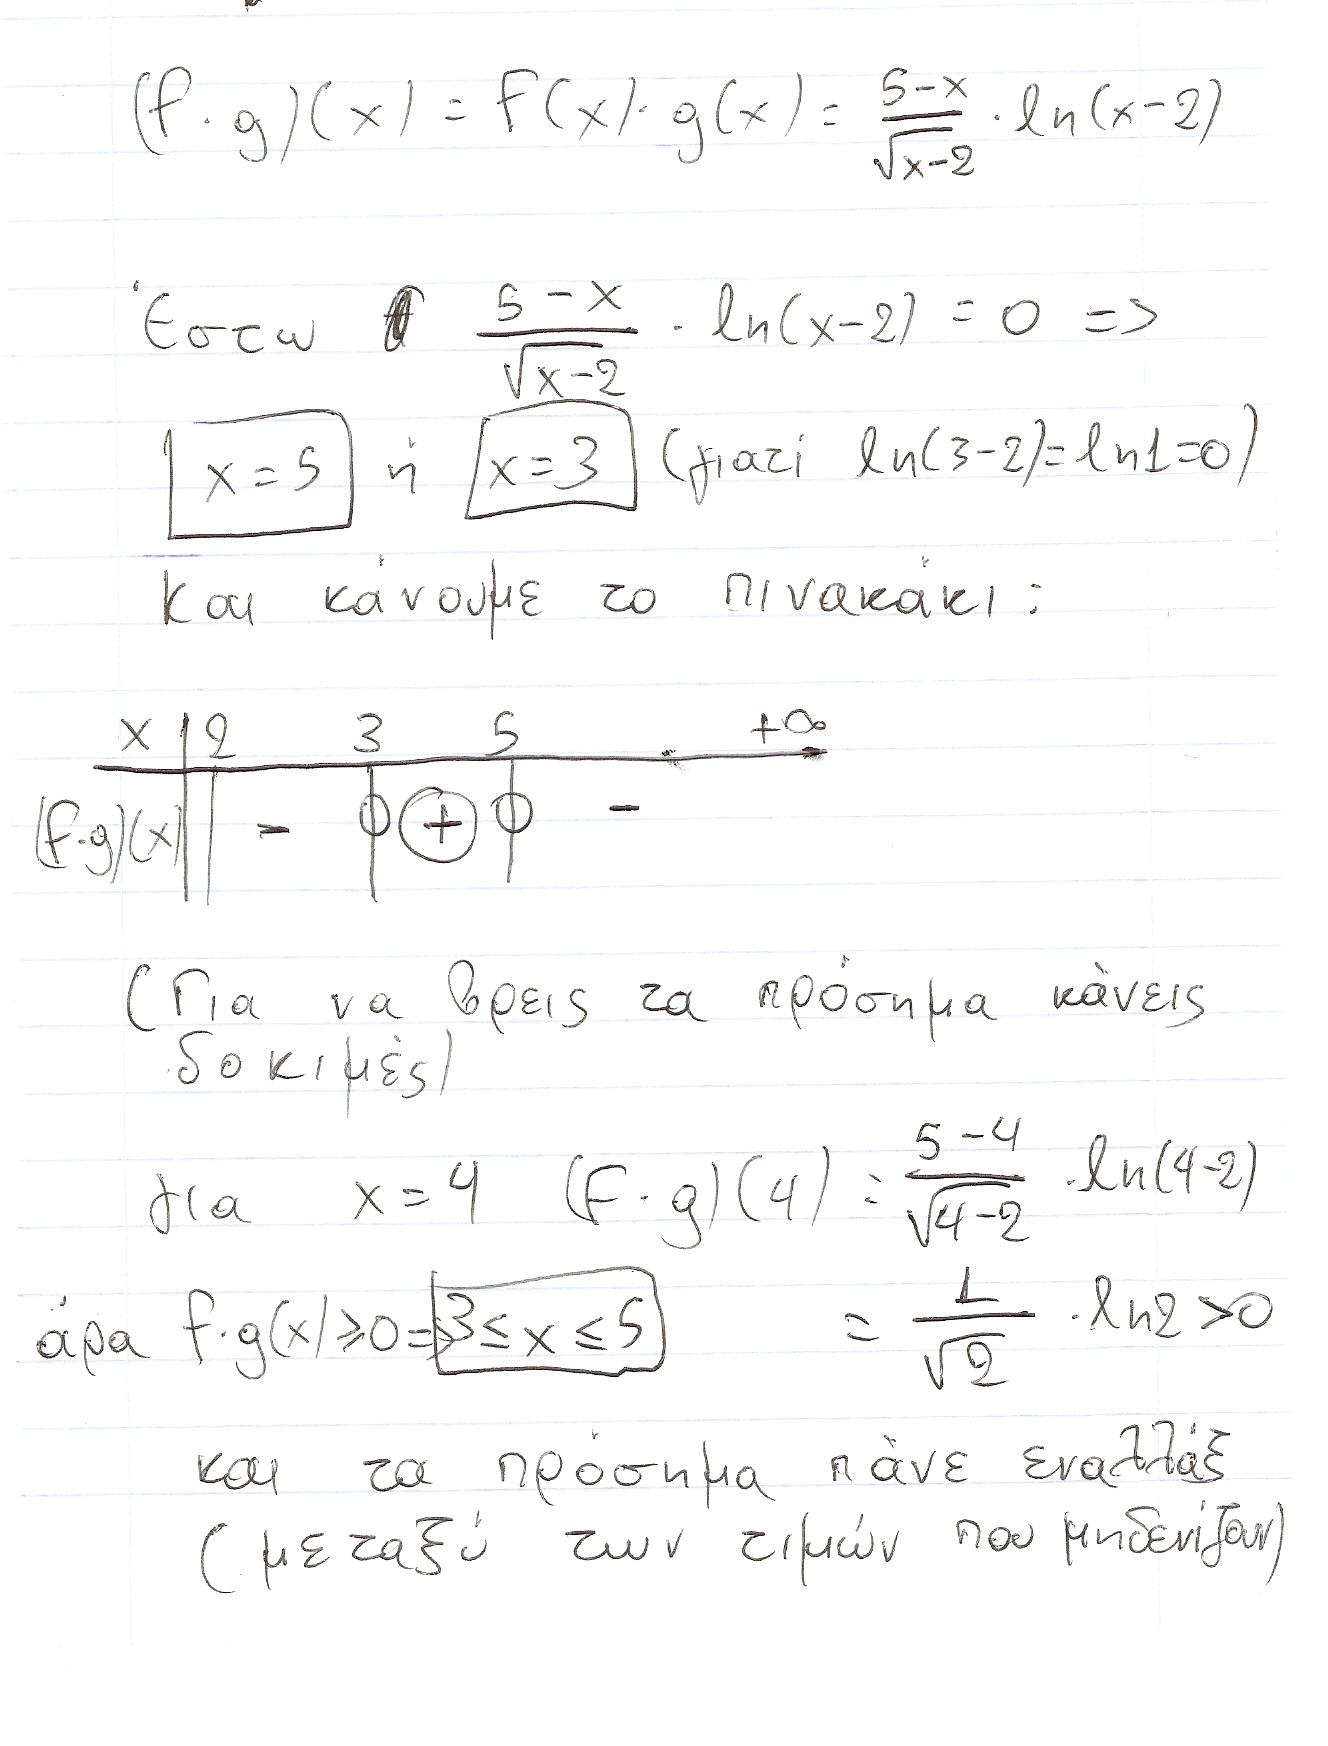 (f·g)(x) = f(x)·g(x) = 5-x/√x-2 · ln(x-2)
Έστω 5-x/√x-2 · ln(x-2) = 0 =>
x=5 ή x=3 (γιατί ln(3-2)=ln1=0)
Και κάνουμε το πινακάκι:
x 2 3 5 +∞
(f·g)(x) - + -
(Για να βρεις τα πρόσημα κάνεις
δοκιμές)
για x=4 (f·g)(4) = 5-4/√4-2 ·ln(4-2)
άρα f·g(x)≥0=>3≤x≤5 = 1/√2 ·ln2>0
και τα πρόσημα πάνε εναλλάξ
(μεταξύ των τιμών που μηδενίζουν)